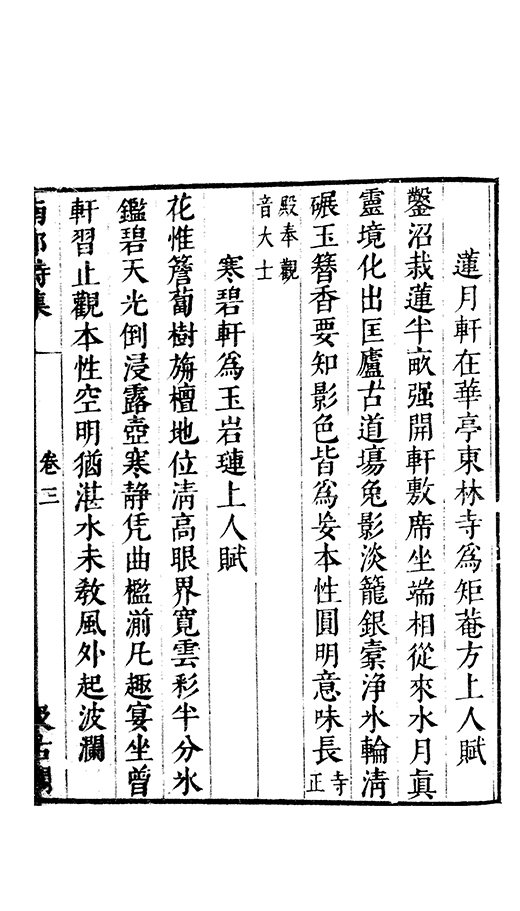 蓮月軒在華亭東林寺爲矩菴方上人賦
鑿沼栽蓮半畝强開軒敷席坐端相從來水月眞
靈境化出匡廬古道塲兔影淡籠銀淨氷輪淸
碾玉簪香要知影色皆爲妄本性圓明意味長寺正
殿奉觀
音大士
寒碧軒爲玉岩璉上人賦
花惟簷蔔樹旃檀地位淸高眼界寛雲彩半分氷
鑑碧天光倒浸露壺寒静凭曲檻湔凡趣宴坐曾
軒習止觀本性空明猶湛水未教風外起波瀾
南邨詩集 卷三 汲古閣